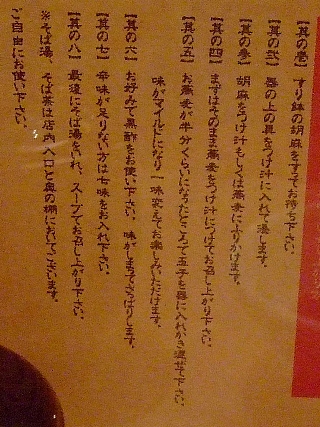 【其の壱】すり鉢の胡麻をすってお待ち下さい。
【其の弐】器の上の具をつけ汁に入れて浸します。
【其の参】胡麻をつけ汁もしくは蕎麦にふりかけます。
【其の四】まずはそのまま蕎麦をつけ汁につけてお召し上がり下さい。
【其の五】お蕎麦が半分くらいになったところで玉子を器に入れかき混ぜて下さい。
味がマイルドになり一味変えてお楽しみいただけます。
【其の六】お好みで黒酢をお使い下さい。味がしまってさっぱりします。
【其の七】辛味が足りない方は七味をお入れ下さい。
【其の八】最後にそば湯をいれ、スープでお召し上がり下さい。
※そば湯、そば茶は店内入口と奥の棚においてございます。
ご自由にお使い下さい。